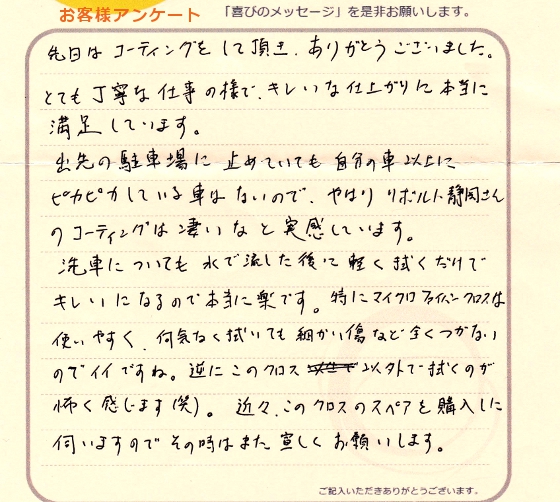 お客様アンケート 「喜びのメッセージ」を是非お願いします。
先日は コーティングを して頂き、ありがとうございました。
とても 丁寧な 仕事の様で、キレイな仕上がりに 本当に
満足しています。
出先の駐車場に 止めていても 自分の車以上に
ピカピカしている車は ないので、やはり リボルト静岡さん
のコーティングは 凄いなと 実感しています。
洗車についても 水で流した後に 軽く拭くだけで
キレイになるので本当に楽です。特にマイクロファイバークロスは
使いやすく、何気なく拭いても 細かい傷など全くつかない
のでイイですね。逆にこのクロス 以外で拭くのが
怖く感じます(笑)。近々、このクロスのスペアを購入しに
伺いますので その時はまた 宜しく お願いします。
ご記入いただきありがとうございます。